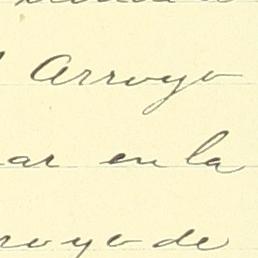 Arroyo
ar en la
royo de